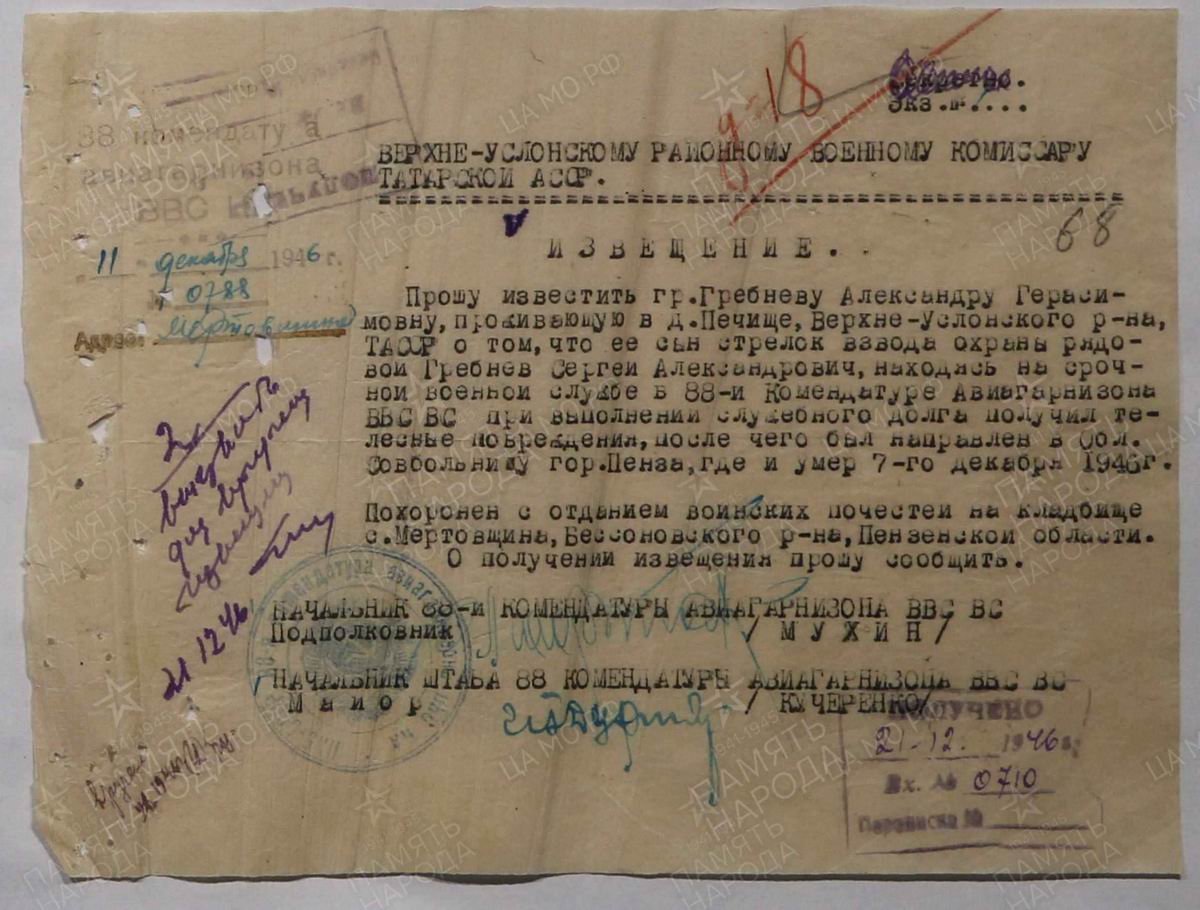 Секретно.
Экз.№....
88 комендатура
авиагарнизона
ВВС
11 декабря 1946 г.
№ 0788
Адрес: Мертовщина
ВЕРХНЕ-УСЛОНСКОМУ РАЙОННОМУ ВОЕННОМУ КОМИССАРУ
ТАТАРСКОЙ АССР.
68
ИЗВЕЩЕНИЕ.
Прошу известить гр.Гребневу Александру Гераси-
мовну, проживающую в д.Печище, Верхне-Услонского р-на,
ТАССР о том, что ее сын стрелок взвода охраны рядо-
вой Гребнев Сергей Александрович, находясь на сроч-
ной военной службе в 88-й Комендатуре Авиагарнизона
ВВС ВС при выполнении служебного долга получил те-
лесные повреждения, после чего был направлен в Обл.
Совбольницу гор.Пенза, где и умер 7-го декабря 1946г.
Похоронен с отданием воинских почестей на кладбище
с.Мертовщина, Бессоновского р-на, Пензенской области.
О получении извещения прошу сообщить.
НАЧАЛЬНИК 88-й КОМЕНДАТУРЫ АВИАГАРНИЗОНА ВВС ВС
Подполковник / МУХИН/
НАЧАЛЬНИК ШТАБА 88 КОМЕНДАТУРЫ АВИАГАРНИЗОНА ВВС ВС
Майор / КУЧЕРЕНКО/
21 12 46
ПОЛУЧЕНО
21.12. 1946 г.
Вх. № 0710
Переписка №
ЦА МО РФ
ПАМЯТЬ НАРОДА
1941-1945